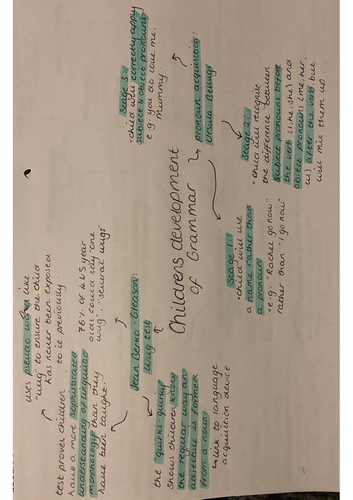 Childrens development
of Grammar
Jean Berko-Gleason:
wug test
uses pseudo words like
"wug" to ensure the child
has never been exposed
to it previously.
76% of 4 & 5 year
olds could say "one
wug", "several wugs"
test proves children
have a more sophisticated
understanding of linguistic
morphology than they
have been taught.
the 'quirks quirky'
shows children know
the regular way an
adjective is formed
from a noun.
↳ link to language
acquisition device
pronoun acquisition:
Ursula Bellugi
Stage 1:
• child will use
a name rather than
a pronoun
• e.g. "Rachel go now"
rather than "I go now"
Stage 2:
• child will recognise
the difference between
subject pronouns before
the verb (I, he, she) and
object pronouns (me, her,
us) after the verb but
will mix them up
Stage 3:
• child will correctly apply
subject & object pronouns
e.g. you do love me,
Mummy